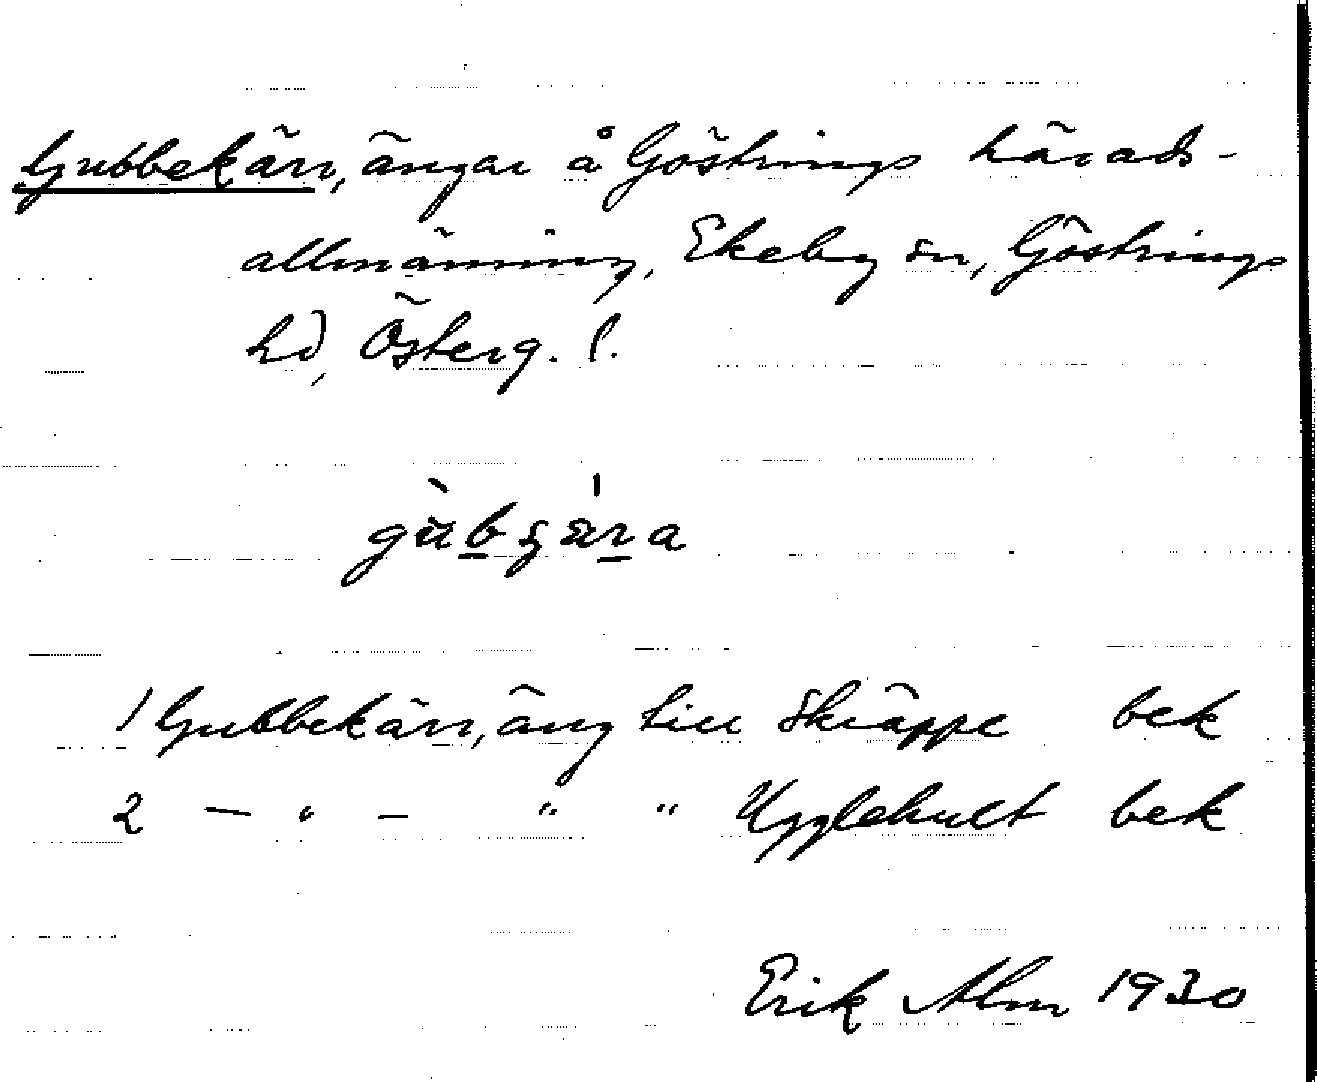 Gubbekärr, ängar å Göstrings härads-
allmänning, Ekeby sn, Göstrings
hd, Österg. l.
1 Gubbekärr, äng till Skräppe bek
2 — " — " " Ugglehult bek
Erik Alm 1930